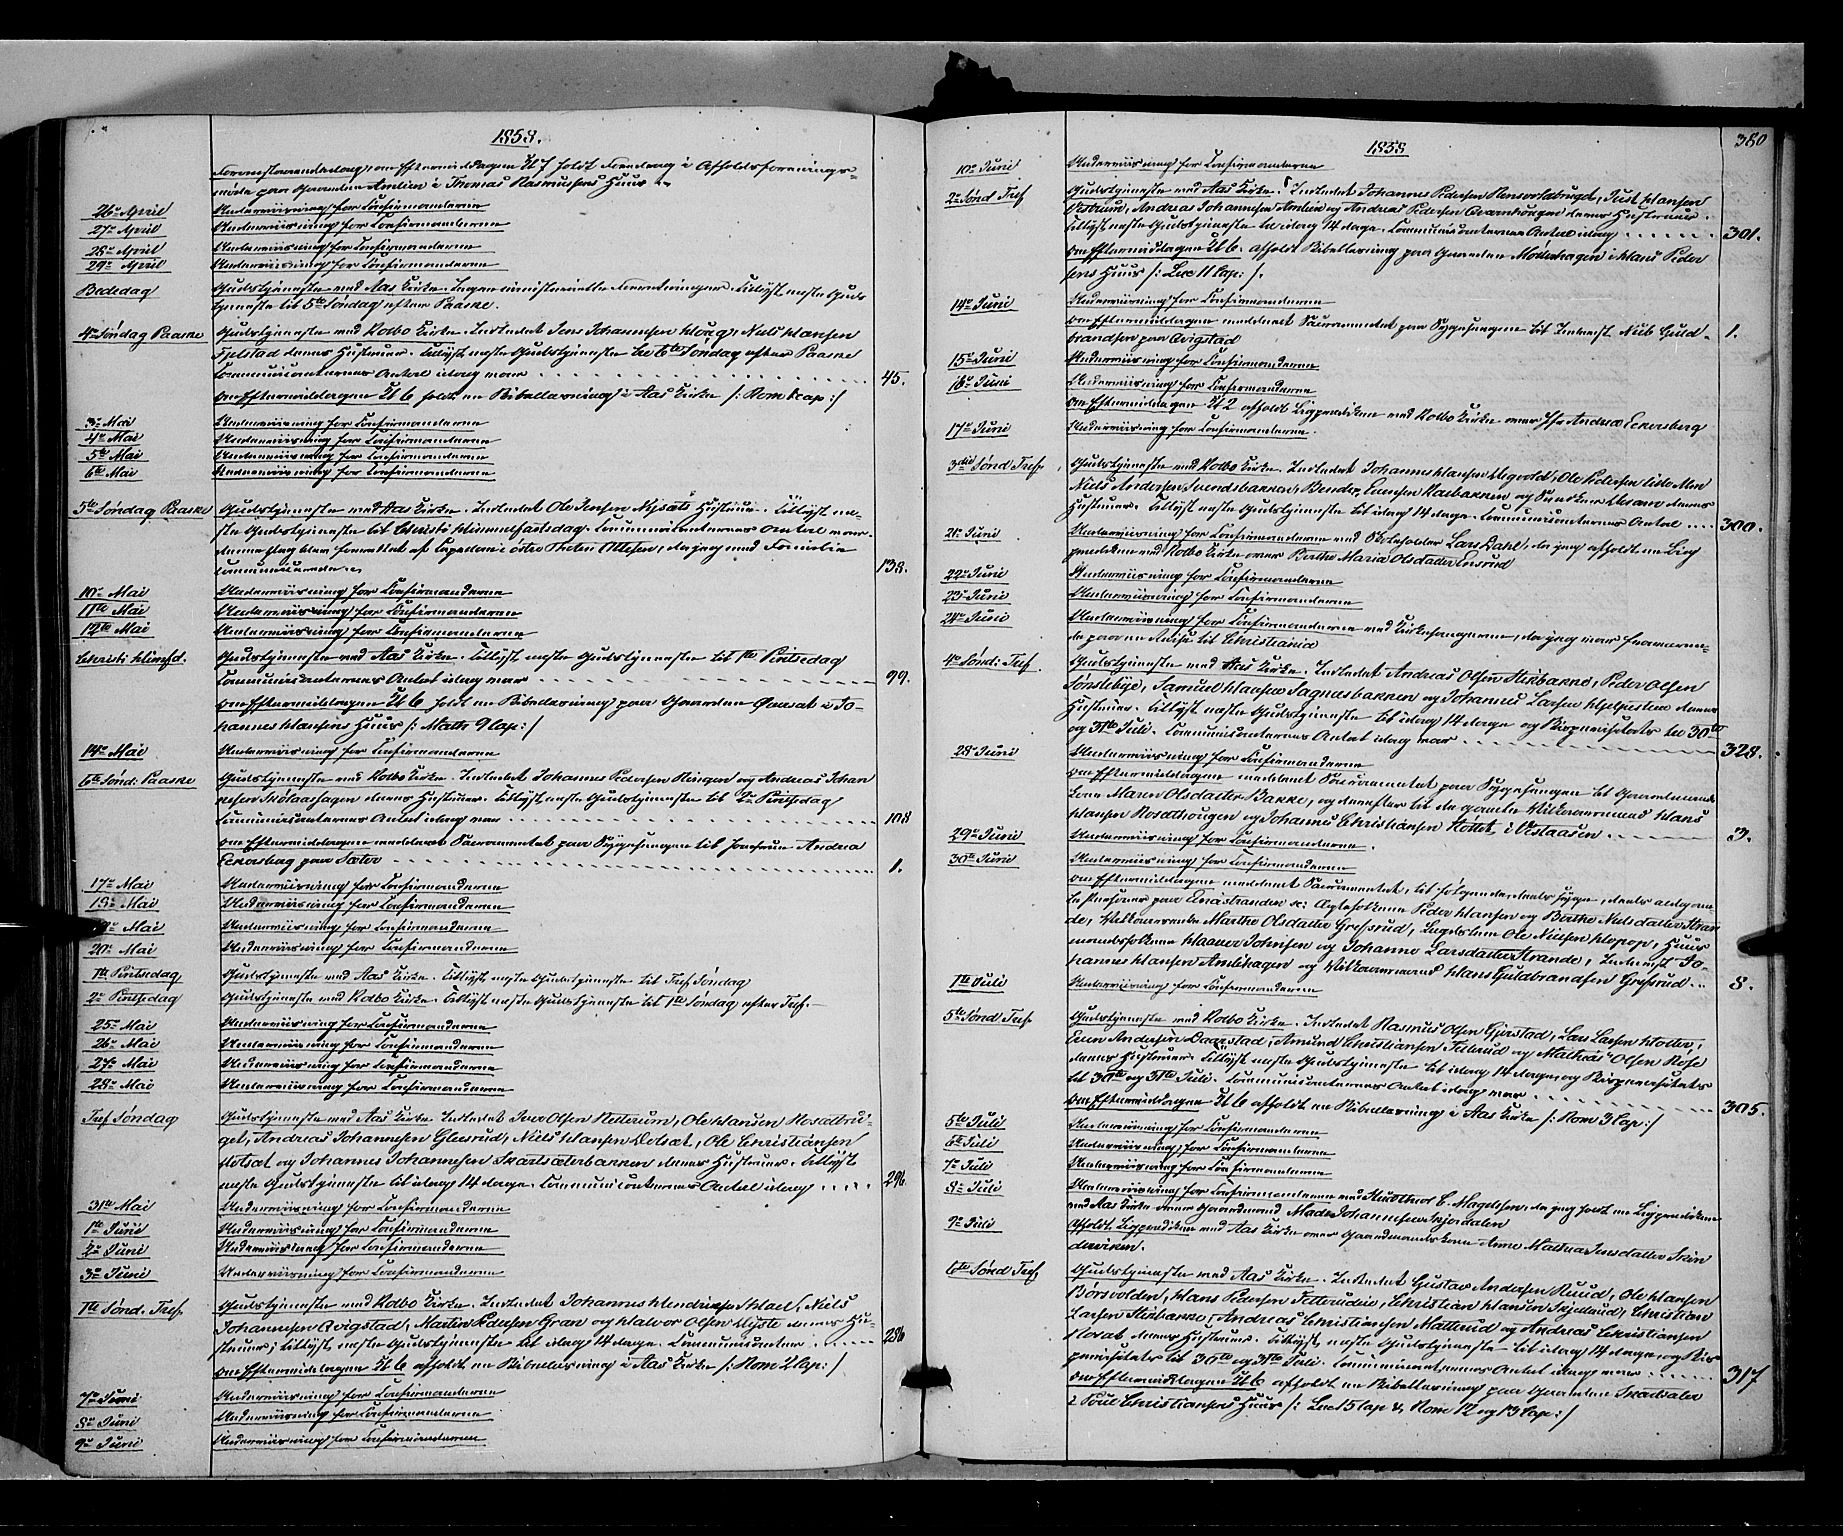 1858.
Formestaaendedag, om Eftermiddagen Kl 7 holdt Foredrag i Afholdsforenings-
møde paa Gaarden Amlien i Thomas Rasmussens Huus
26de April Underviisning for Confirmanderne
27de April Underviisning for Confirmanderne
28de April Underviisning for Confirmanderne
29de April Underviisning for Confirmanderne
Bededag Gudstjeneste ved Aas Kirke. Ingen ministerielle Forretninger. Tillyst næste Guds
tjeneste til 5te Søndag efter Paaske.
4de Søndag Paaske Gudstjeneste ved Kolbo Kirke. Indledet Jens Johannesen Haug, Niels Hansen
Fjelstad deres Hustruer. Tillyst næste Gudstjeneste til 6te Søndag efter Paaske
Communicanternes Antal idag var 45.
om Eftermiddagen Kl 6 holdt en Bibellæsning i Aas Kirke /: Rom 1 Cap :/
3die Mai Underviisning for Confirmanderne
4de Mai Underviisning for Confirmanderne
5te Mai Underviisning for Confirmanderne
6te Mai Underviisning for Confirmanderne
5te Søndag Paaske Gudstjeneste ved Aas Kirke. Indledet Ole Jensen Nysæt Hustrue. Tillyst næ-
ste Gudstjeneste til Christi Himmelfartsdag. Communicanternes Antal var
denne Dag blev forrettet af Capellan i Østre Thoten Ottesen, da jeg med Familie
communicerede 138.
10de Mai Underviisning for Confirmanderne
11te Mai Underviisning for Confirmanderne
12te Mai Underviisning for Confirmanderne
Christi Himfd. Gudstjeneste ved Aas Kirke. Tillyst næste Gudstjeneste til 1ste Pintsedag
Communicanternes Antal idag var 99.
om Eftermiddagen Kl 6 holdt en Bibellæsning paa Gaarden i Jo-
hannes Hansens Huus /: Math 9 Cap :/
14de Mai Underviisning for Confirmanderne
6te Sønd. Paaske Gudstjeneste ved Kolbo Kirke. Indledet Johannes Pedersen Klingen og Andreas Johan
nesen Skølaashagen deres Hustruer. Tillyst næste Gudstjeneste til 2den Pintsedag
Communicanternes Antal idag var 108
om Eftermiddagen meddelt Sacramentet paa Sygesengen til Jomfrue Andrea
Eckersberg paa Sæter 1.
17de Mai Underviisning for Confirmanderne
18de Mai Underviisning for Confirmanderne
19de Mai Underviisning for Confirmanderne
20de Mai Underviisning for Confirmanderne
1ste Pintsedag Gudstjeneste ved Aas Kirke. Tillyst næste Gudstjeneste til Tref Søndag
2den Pintsedag Gudstjeneste ved Kolbo Kirke. Tillyst næste Gudstjeneste til 1ste Søndag efter Tref.
25de Mai Underviisning for Confirmanderne
26de Mai Underviisning for Confirmanderne
27de Mai Underviisning for Confirmanderne
28de Mai Underviisning for Confirmanderne
Tref Søndag Gudstjeneste ved Aas Kirke. Indledet Iver Olsen Netterum, Ole Hansen Rosaltrug-
get, Andreas Johannesen Gleesrud, Niels Hansen Dølsæt, Ole Christiansen
Hotsæt og Johannes Johannesen Skartsæterbakken deres Hustruer. Tillyst
næste Gudstjeneste til idag 14 dage. Communicanternes Antal idag 296.
31te Mai Underviisning for Confirmanderne
1ste Juni Underviisning for Confirmanderne
2den Juni Underviisning for Confirmanderne
3die Juni Underviisning for Confirmanderne
1ste Sønd. Tref. Gudstjeneste ved Kolbo Kirke. Indledet Johannes Hendriksen Hael, Niels
Johannesen Qvigstad, Martin Pedersen Gran og Halvor Olsen Nyste deres Hu-
struer; tillyst næste Gudstjeneste til idag 14 dage. Communicanter 286
om Eftermiddagen Kl 6 afholdt en Bibellæsning i Aas Kirke /: Rom 2 Cap :/
7de Juni Underviisning for Confirmanderne
8de Juni Underviisning for Confirmanderne
9de Juni Underviisning for Confirmanderne
1858
380
10de Juni Underviisning for Confirmanderne
2den Sønd Tref Gudstjeneste ved Aas Kirke. Indledet Johannes Pedersen, Just Hansen
Vestrum, Andreas Johannesen Amlien og Andreas Pedersen Qværnhougen deres Hustruer.
Tillyst næste Gudstjeneste til idag 14 dage. Communicanternes Antal idag 301.
om Eftermiddagen Kl 6 afholdt Bibellæsning paa Gaarden Mødenhagen i Hans Peder
sens Huus /: Luc 11 Cap :/
14de Juni Underviisning for Confirmanderne
om Eftermiddagen meddelt Sacramentet paa Sygesengen til Inderst Niels Guld-
brandsen paa Qvigstad 1.
15de Juni Underviisning for Confirmanderne
16de Juni Underviisning for Confirmanderne
om Eftermiddagen Kl 2 afholdt Liigprædiken ved Kolbo Kirke over Jfr Andrea Eckersberg
17de Juni Underviisning for Confirmanderne.
3die Sønd Tref. Gudstjeneste ved Kolbo Kirke. Indledet Johannes Hansen, Ole Pedersen lille Alm
Niels Andersen Svendsbakken, Bendix Evensen Narbakken og deres
Hustruer. Tillyst næste Gudstjeneste til idag 14 dage. Communicanternes Antal 300.
21de Juni Underviisning for Confirmanderne ved Skoleholder Lars Dahl, da jeg afholdt en Liig
prædiken ved Kolbo Kirke over Berthe Maria Olsdatter Ensrud
22de Juni Underviisning for Confirmanderne
23de Juni Underviisning for Confirmanderne
24de Juni Underviisning for Confirmanderne ved Kirkesangeren, da jeg var fraværen-
de paa en Reise til Christiania
4de Sønd: Tref. Gudstjeneste ved Aas Kirke. Indledet Andreas Olsen Stikbakke, Peder Olsen
Sønsteby, Samuel Hansen Sagnæsbakken og Johannes Larsen deres
Hustruer. Tillyst næste Gudstjeneste til idag 14 dage og Bispevisitats til 30te
og 31te Juli. Communicanternes Antal idag var 328.
28de Juni Underviisning for Confirmanderne
om Eftermiddagen meddelt Sacramentet paa Sygesengen til Gaardmands
kone Maren Olsdatter Bakke, og derefter til de gamle Vilkaarsmænd Hans
Hansen Rosalthougen og Johannes Christiansen i Vestaasen 3.
29de Juni Underviisning for Confirmanderne.
30te Juni Underviisning for Confirmanderne
om Eftermiddagen meddelt Sacramentet, til følgende, deels syge, deels alderom-
me Personer paa Einastranden sc: Ægtefolkene Peder Hansen og Berthe Nielsdatter Stran
de, Vilkaarsenke Marthe Olsdatter Græsrud, Lægdslem Ole Nielsen, Huus
mandsfolkene Haaver Johnsen og Johanne Larsdatter Strande, Inderst Jo-
hannes Hansen Amlihagen og Vilkaarsmand Hans Guldbrandsen Græsrud 8.
1ste Juli Underviisning for Confirmanderne
5te Sønd Tref. Gudstjeneste ved Kolbo Kirke. Indledet Rasmus Olsen Gjerstad, Lars Larsen Holter,
Even Andersen Daarstad, Amund Christiansen Fiterud og Mathias Olsen Røise
deres Hustruer. Tillyst næste Gudstjeneste til idag 14 dage og Bispevisitats
til 30te og 31te Juli. Communicanternes Antal idag var 305.
om Eftermiddagen Kl 6 afholdt en Bibellæsning i Aas Kirke /: Rom 3 Cap :/
5te Juli Underviisning for Confirmanderne
6te Juli Underviisning for Confirmanderne
7de Juli Underviisning for Confirmanderne
8de Juli Underviisning for Confirmanderne ved E. Magelssen, da jeg holdt en Liigprædiken
ved Aas Kirke over Gaardmand Mads Johannesen Skjærdalen
9de Juli Afholdt Liigprædiken ved Aas Kirke over Gaardmandskone Anne Mathea Jensdatter Skin
derviken.
6te Sønd Tref. Gudstjeneste ved Aas Kirke. Indledet Gustav Andersen Ruud, Ole Hansen
Børsvolden, Hans Pedersen, Christian Hansen Skjelrud, Christian
Larsen Stikbakke, Andreas Christiansen Mattrud og Andreas Christiansen
deres Hustruer. Tillyst næste Gudstjeneste til idag 14 dage, og Bis-
pevisitats til 30te og 31te Juli. Communicanternes Antal idag var 317
om Eftermiddagen Kl 6 afholdt en Bibellæsning paa Gaarden Skardalen
i Poul Christiansens Huus /: Luc 15 Cap & Rom 12 og 13 Cap :/